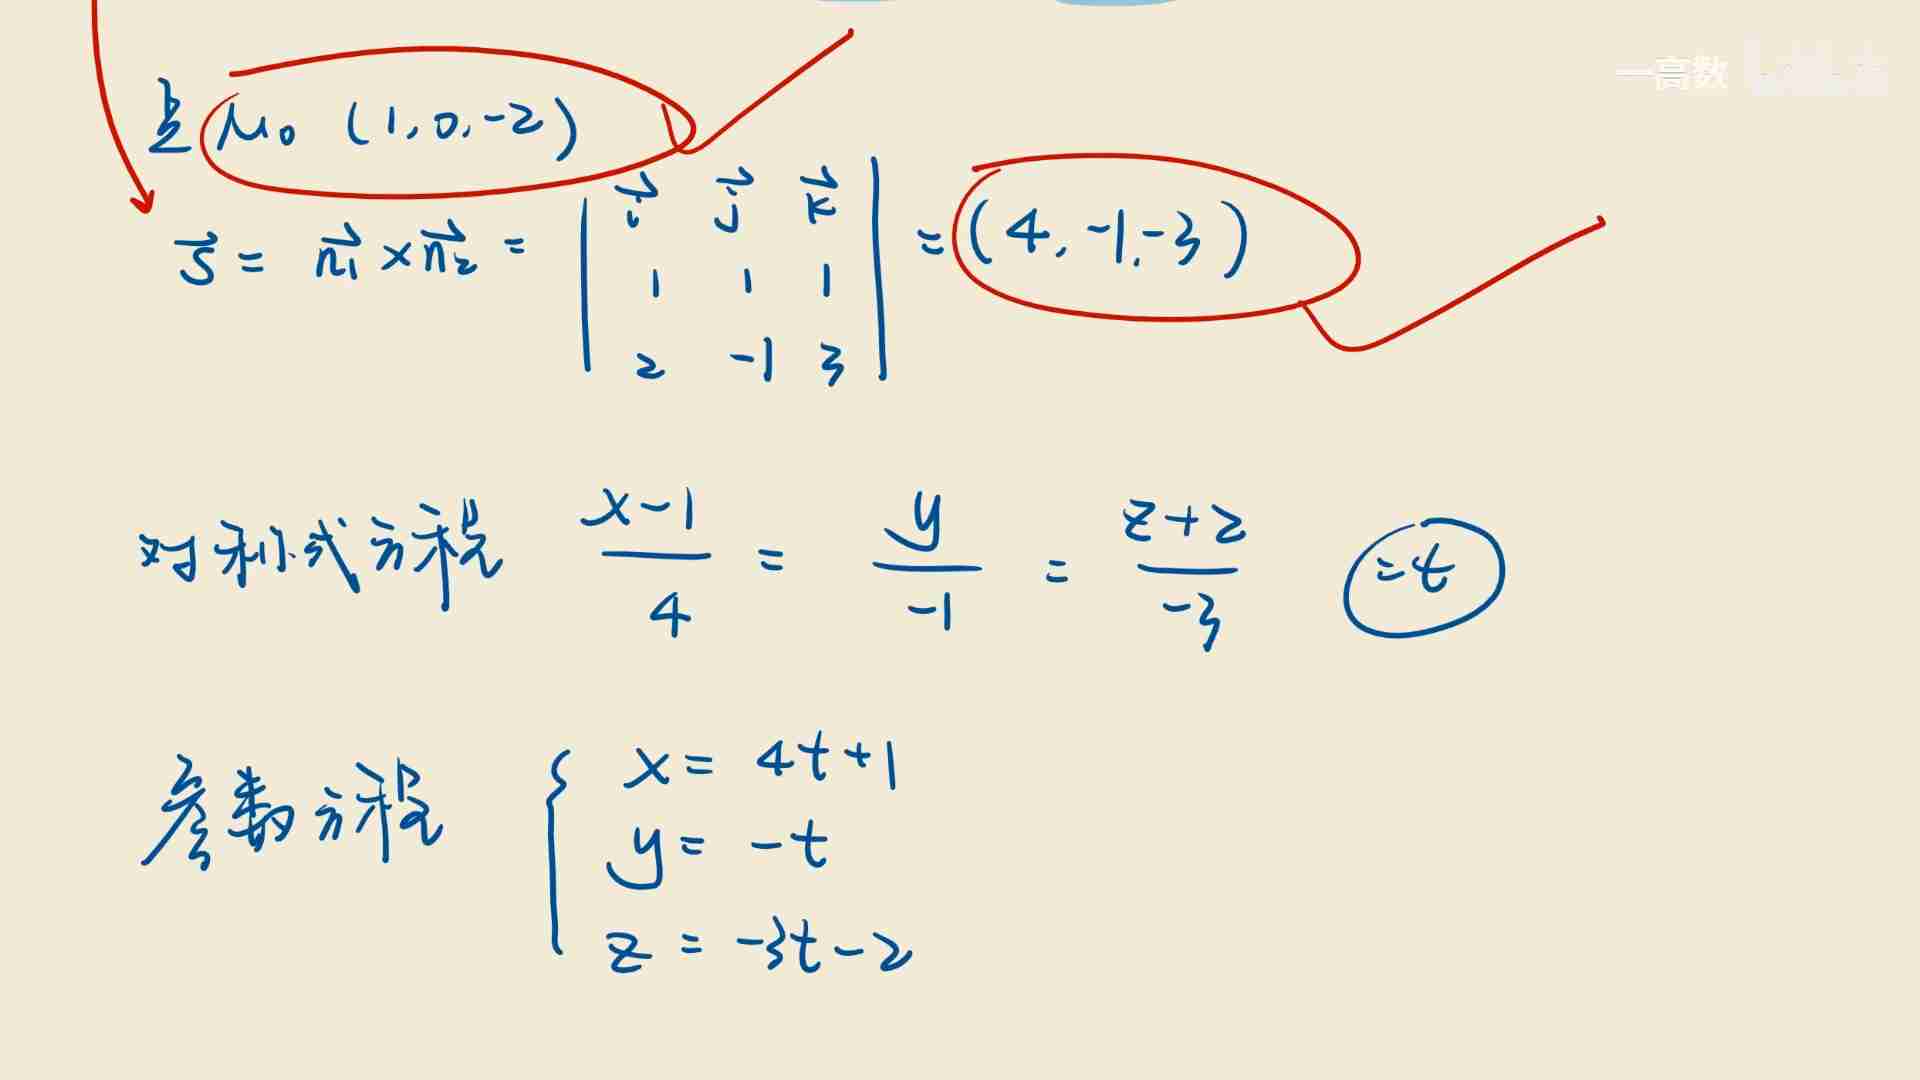 一高数
点 M₀ (1, 0, -2)
s⃗ = n⃗₁ × n⃗₂ = | i⃗ j⃗ k⃗ | = (4, -1, -3)
1 1 1
2 -1 3
对称式方程 x-1/4 = y/-1 = z+2/-3 = t
参数方程 { x = 4t+1
y = -t
z = -3t-2